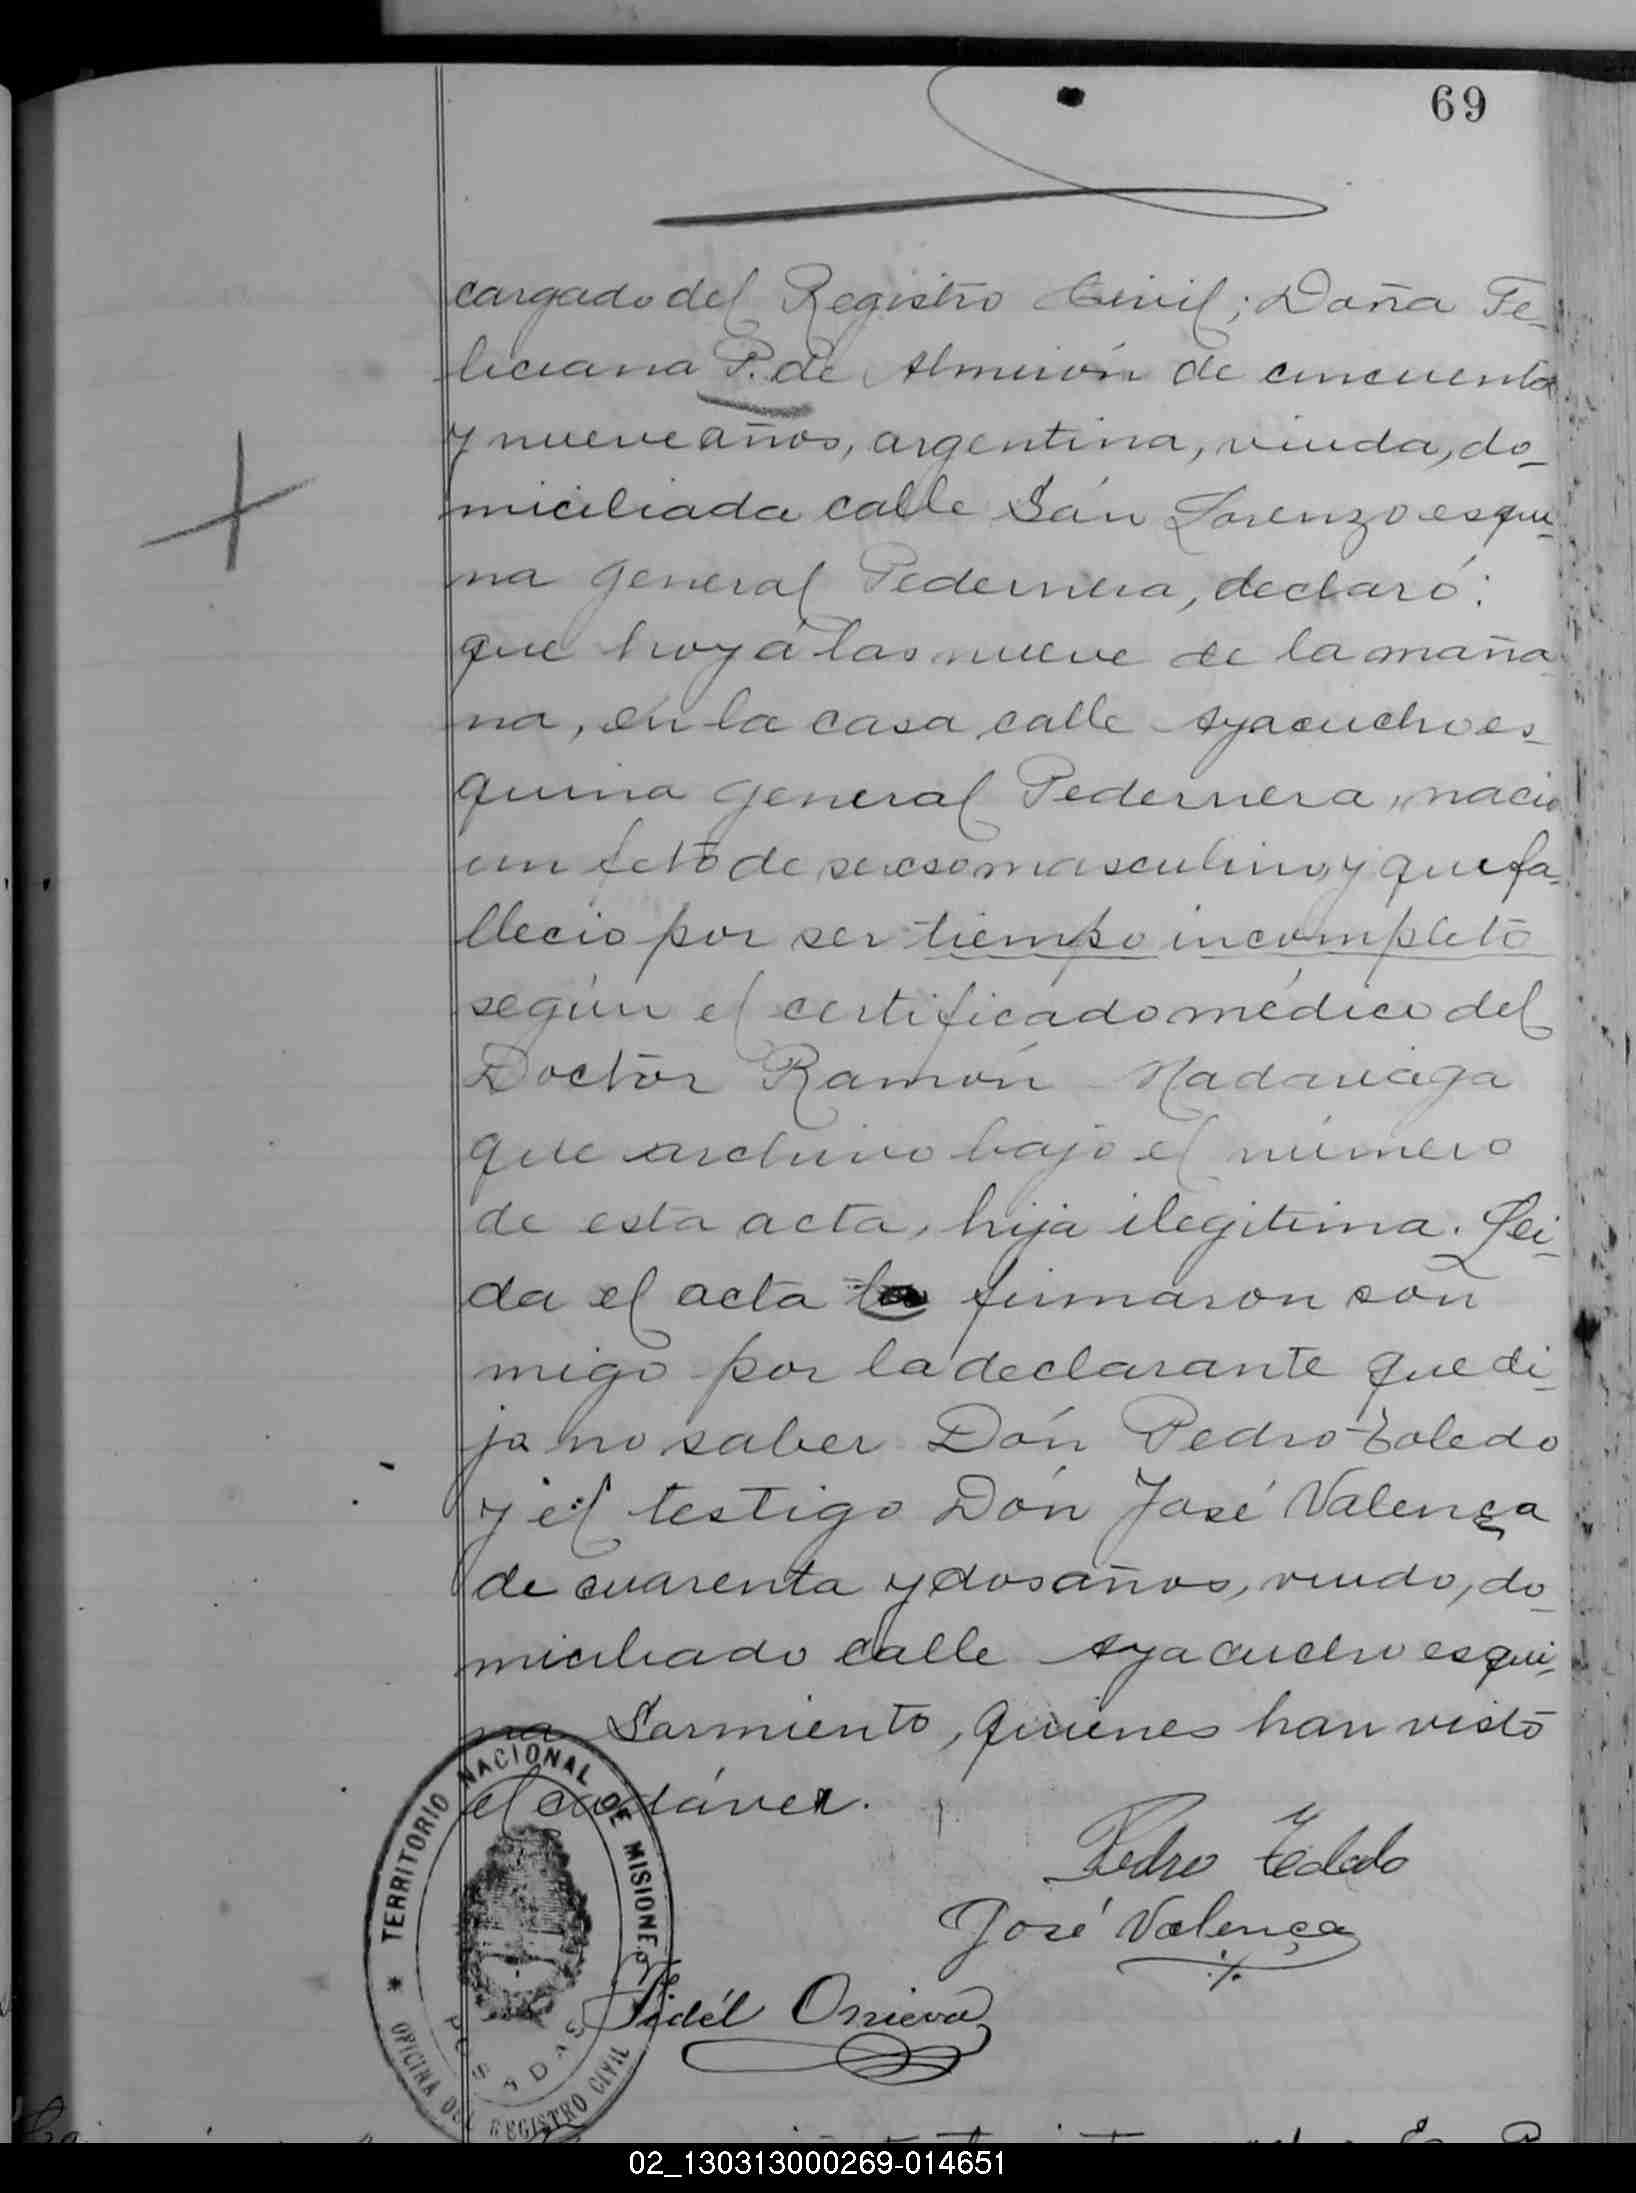 69
cargado del Registro Civil; Doña Fe-
liciana P. de Almirón de cincuenta
y nueve años, argentina, viuda, do-
miciliada calle Sán Lorenzo esqui-
na General Pedernera, declaró:
que hoy á las nueve de la maña
na, en la casa calle Ayacucho es-
quina General Pedernera, nació
un feto de secso masculino y que fa-
llecio por ser tiempo incompleto
según el certificado médico del
Doctór Ramón Madariaga
que archivo bajo el número
de esta acta, hija ilegitima. Lei-
da el acta la firmaron con
migo por la declarante que di-
jo no saber Dón Pedro Toledo
y el testigo Dón José Valença
de cuarenta y dos años, viudo, do-
miciliado calle Ayacucho esqui-
na Sarmiento, quienes han visto
el cadáver.
Pedro Toledo
José Valença
Fidél
TERRITORIO NACIONAL DE MISIONES
POSADAS
OFICINA DEL REGISTRO CIVIL
02_130313000269-014651